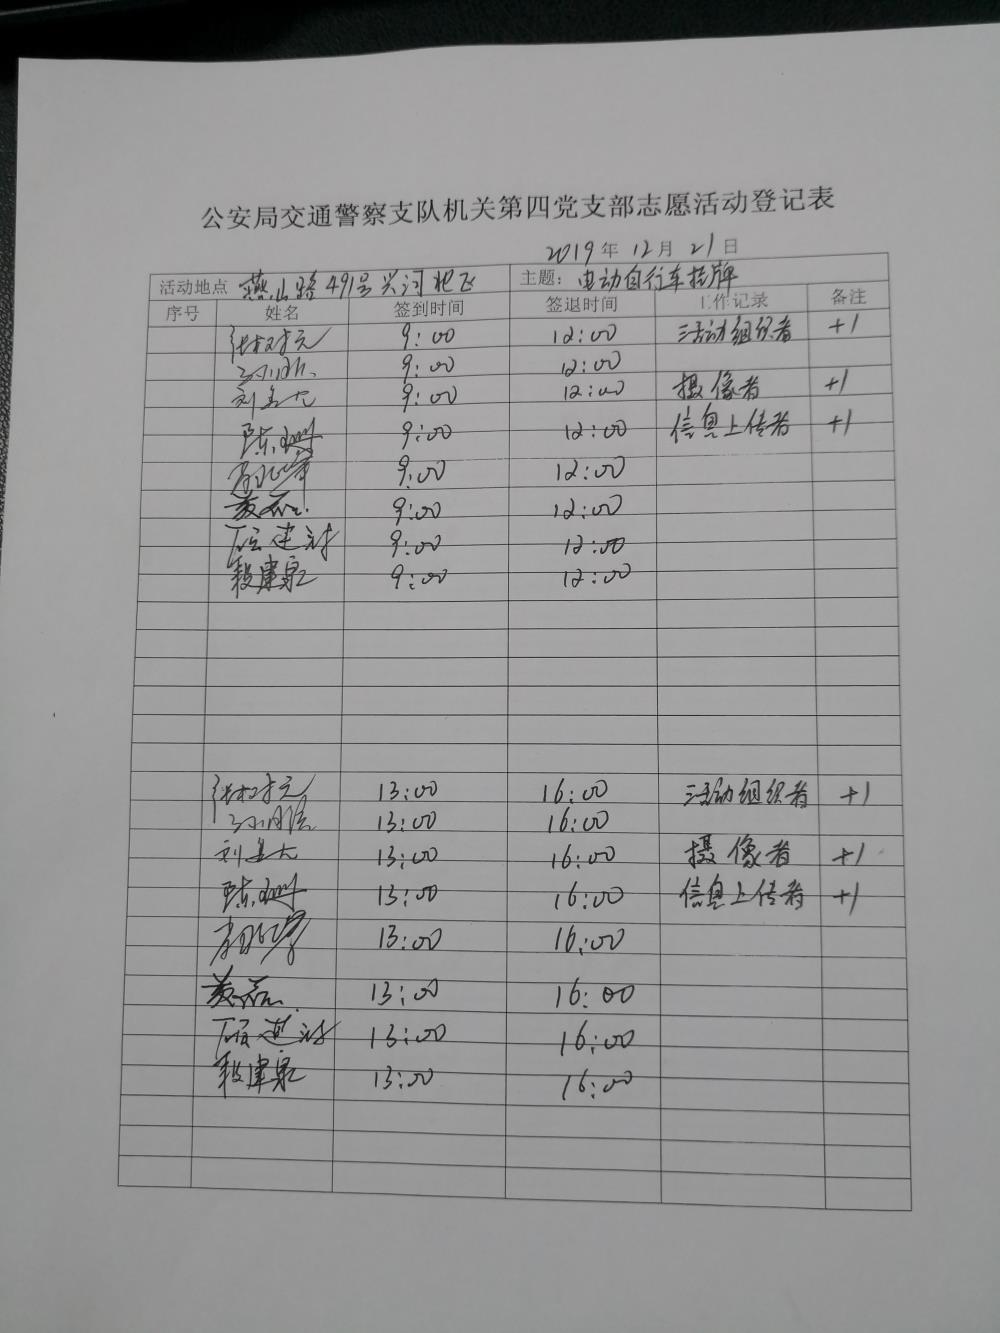 公安局交通警察支队机关第四党支部志愿活动登记表
2019年12月21日
活动地点 燕山路491号兴河 主题：电动自行车挂牌
序号 姓名 签到时间 签退时间 工作记录 备注
9:00 12:00 活动组织者 +1
9:00 12:00
9:00 12:00 摄像者 +1
陈 9:00 12:00 信息上传者 +1
9:00 12:00
9:00 12:00
建 9:00 12:00
段建泉 9:00 12:00
13:00 16:00 活动组织者 +1
13:00 16:00
13:00 16:00 摄像者 +1
陈 13:00 16:00 信息上传者 +1
13:00 16:00
13:00 16:00
建 13:00 16:00
段建泉 13:00 16:00